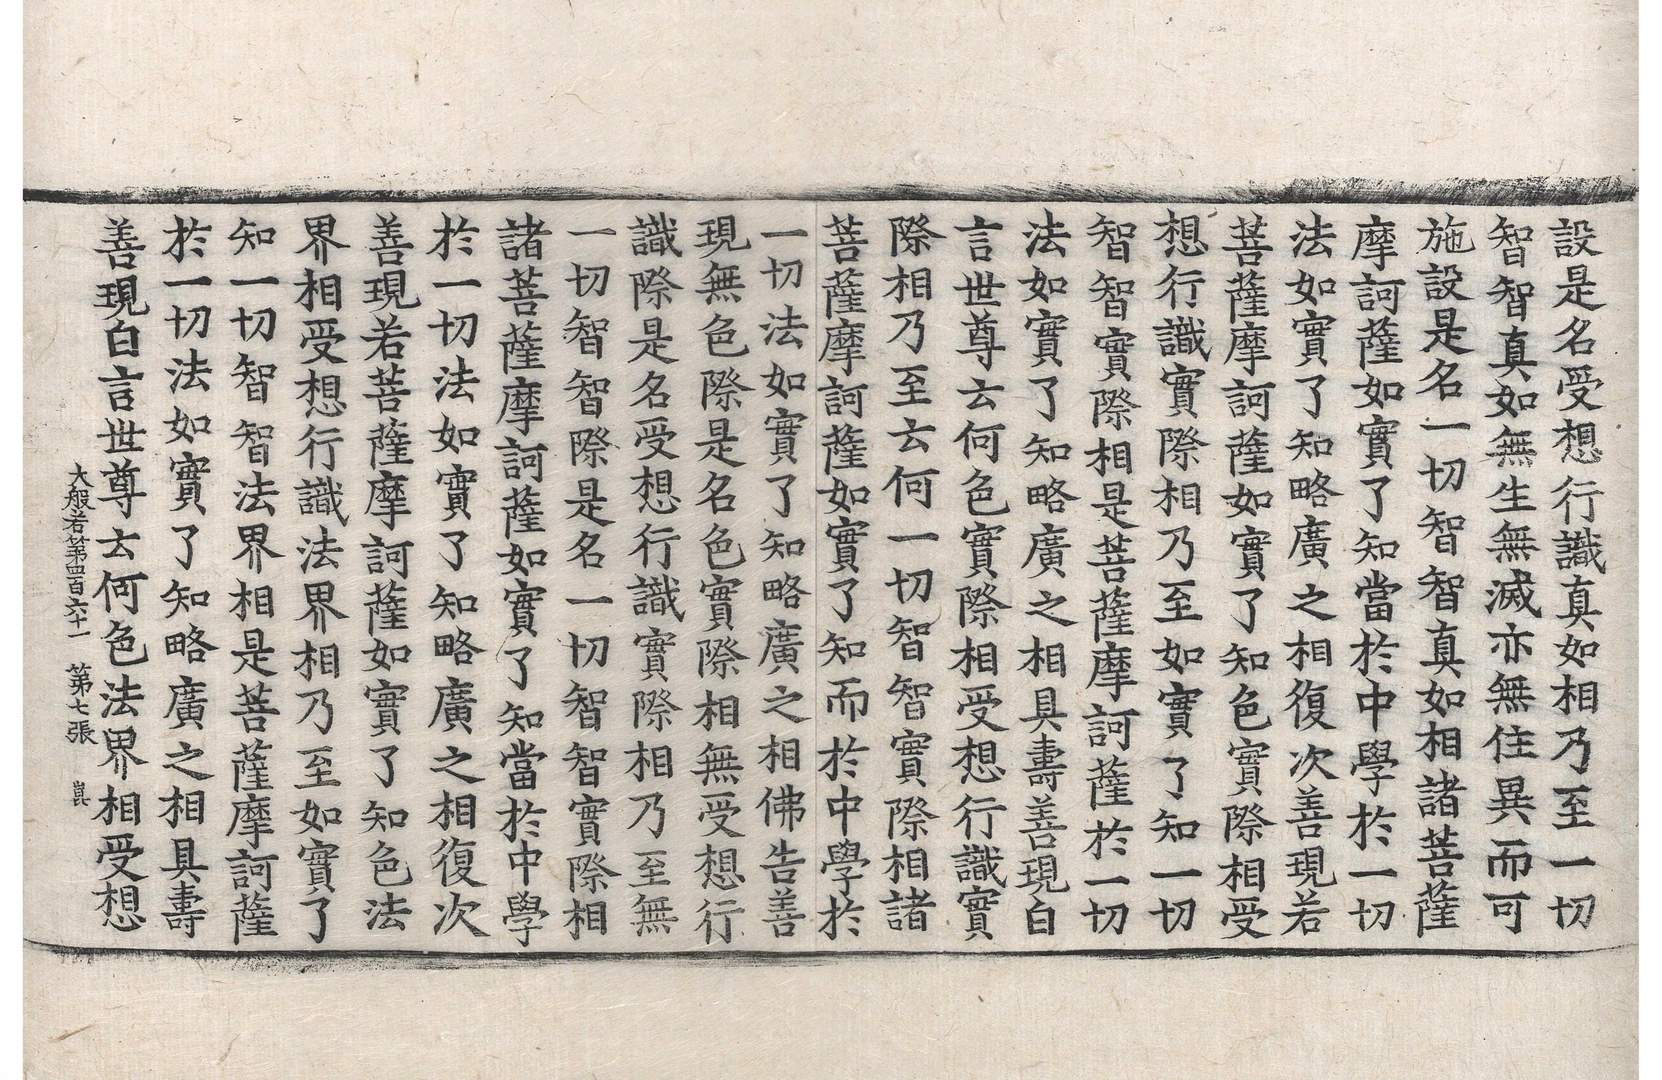 設是名受想行識真如相乃至一切
智智真如無生無滅亦無住異而可
施設是名一切智智真如相諸菩薩
摩訶薩如實了知當於中學於一切
法如實了知略廣之相復次善現若
菩薩摩訶薩如實了知色實際相受
想行識實際相乃至如實了知一切
智智實際相是菩薩摩訶薩於一切
法如實了知略廣之相具壽善現白
言世尊云何色實際相受想行識實
際相乃至云何一切智智實際相諸
菩薩摩訶薩如實了知而於中學於
一切法如實了知略廣之相佛告善
現無色際是名色實際相無受想行
識際是名受想行識實際相乃至無
一切智智際是名一切智智實際相
諸菩薩摩訶薩如實了知當於中學
於一切法如實了知略廣之相復次
善現若菩薩摩訶薩如實了知色法
界相受想行識法界相乃至如實了
知一切智智法界相是菩薩摩訶薩
於一切法如實了知略廣之相具壽
善現白言世尊云何色法界相受想
大般若第四百六十一 第七張 崑